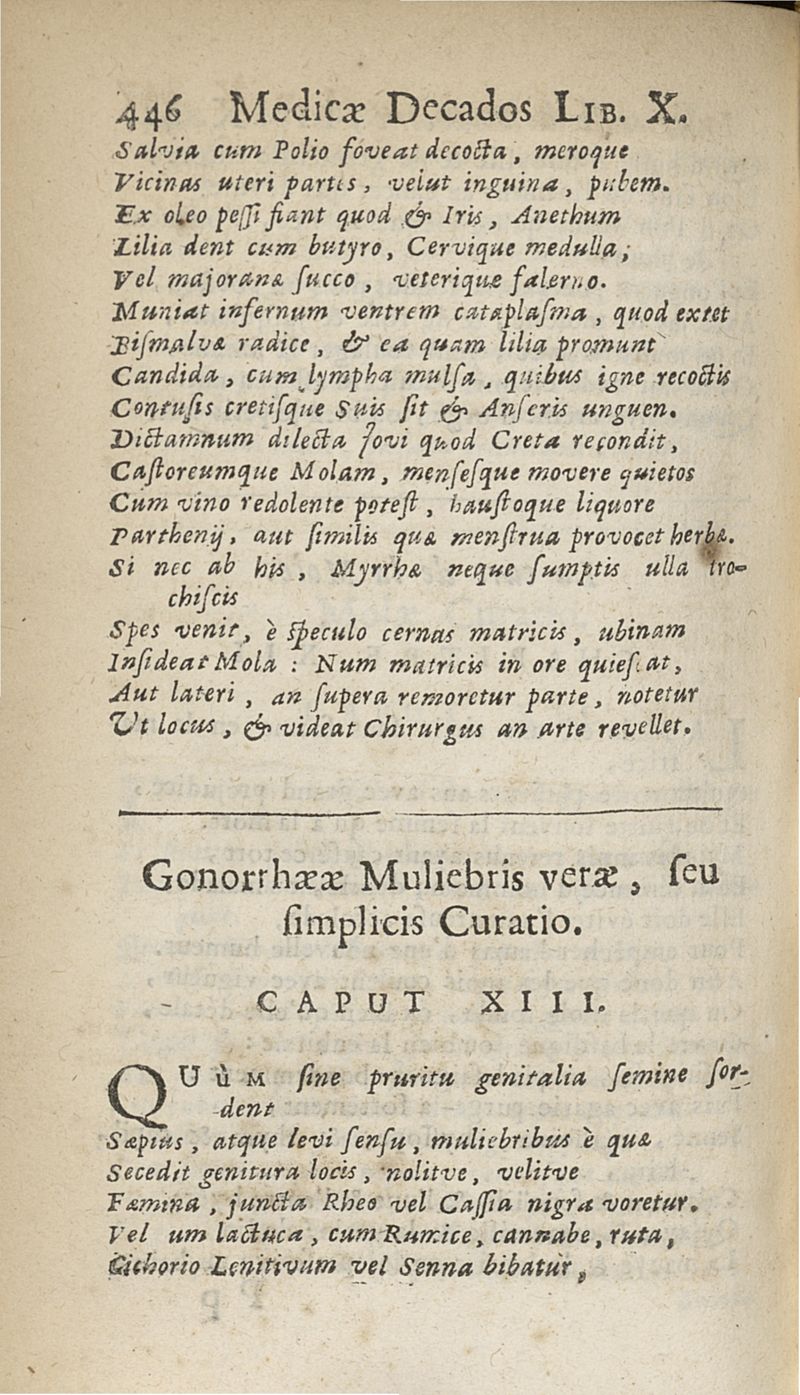 446 Medicæ Decados LIB. X.
Salvia cum Polio foveat decocta, meroque
Vicinas uteri partes, velut inguina, pubem.
Ex oleo peſſi fiant quod & Iris, Anethum
Lilia dent cum butyro, Cervique medulla;
Vel majoranæ ſucco, veterique falerno.
Muniat infernum ventrem cataplaſma, quod extet
Biſmalvæ radice, & ea quam lilia promunt
Candida, cum lympha mulſa, quibus igne recoctis
Contuſis cretiſque Suis ſit & Anſeris unguen.
Dictamnum dilecta Jovi quod Creta recondit,
Caſtoreumque Molam, menſeſque movere quietos
Cum vino redolente poteſt, hauſtoque liquore
Parthenij, aut ſimilis quæ menſtrua provocet herbæ.
Si nec ab his, Myrrhæ neque ſumptis ulla tro-
chiſcis
Spes venit, è ſpeculo cernas matricis, ubinam
Inſideat Mola : Num matricis in ore quieſcat,
Aut lateri, an ſupera remoretur parte, notetur
Ut locus, & videat Chirurgus an arte revellet.
Gonorrhææ Muliebris veræ, ſeu
ſimplicis Curatio.
CAPUT XIII.
QUùM ſine pruritu genitalia ſemine ſor-
dent
Sæpius, atque levi ſenſu, muliebribus è quæ
Secedit genitura locis, nolitve, velitve
Fæmina, juncta Rheo vel Caſſia nigra voretur.
Vel um lactuca, cum Rumice, cannabe, ruta,
Cichorio Lenitivum vel Senna bibatur,